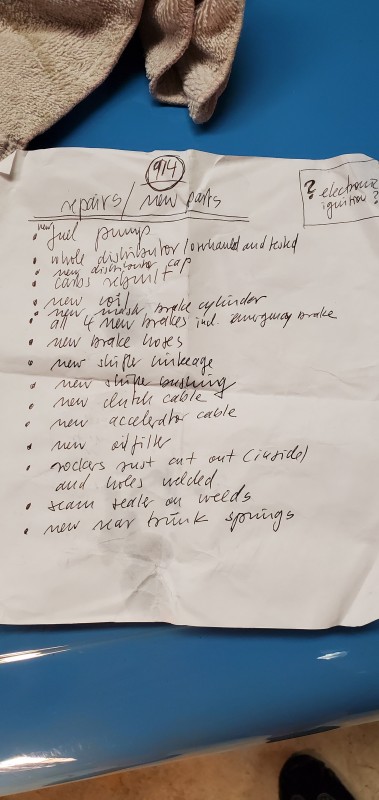 914
? electronic
ignition ?
repairs/ new parts
• new fuel pump
• whole distributor / overhauled and tested
• new distributor cap
• carbs rebuilt
• new coil
• new master brake cylinder
• all 4 new brakes incl. emergency brake
• new brake hoses
• new shifter linkeage
• new shifter bushing
• new clutch cable
• new accelerator cable
• new oilfilter
• rockers rust cut out (inside)
and holes welded
• seam sealer on welds
• new rear trunk springs